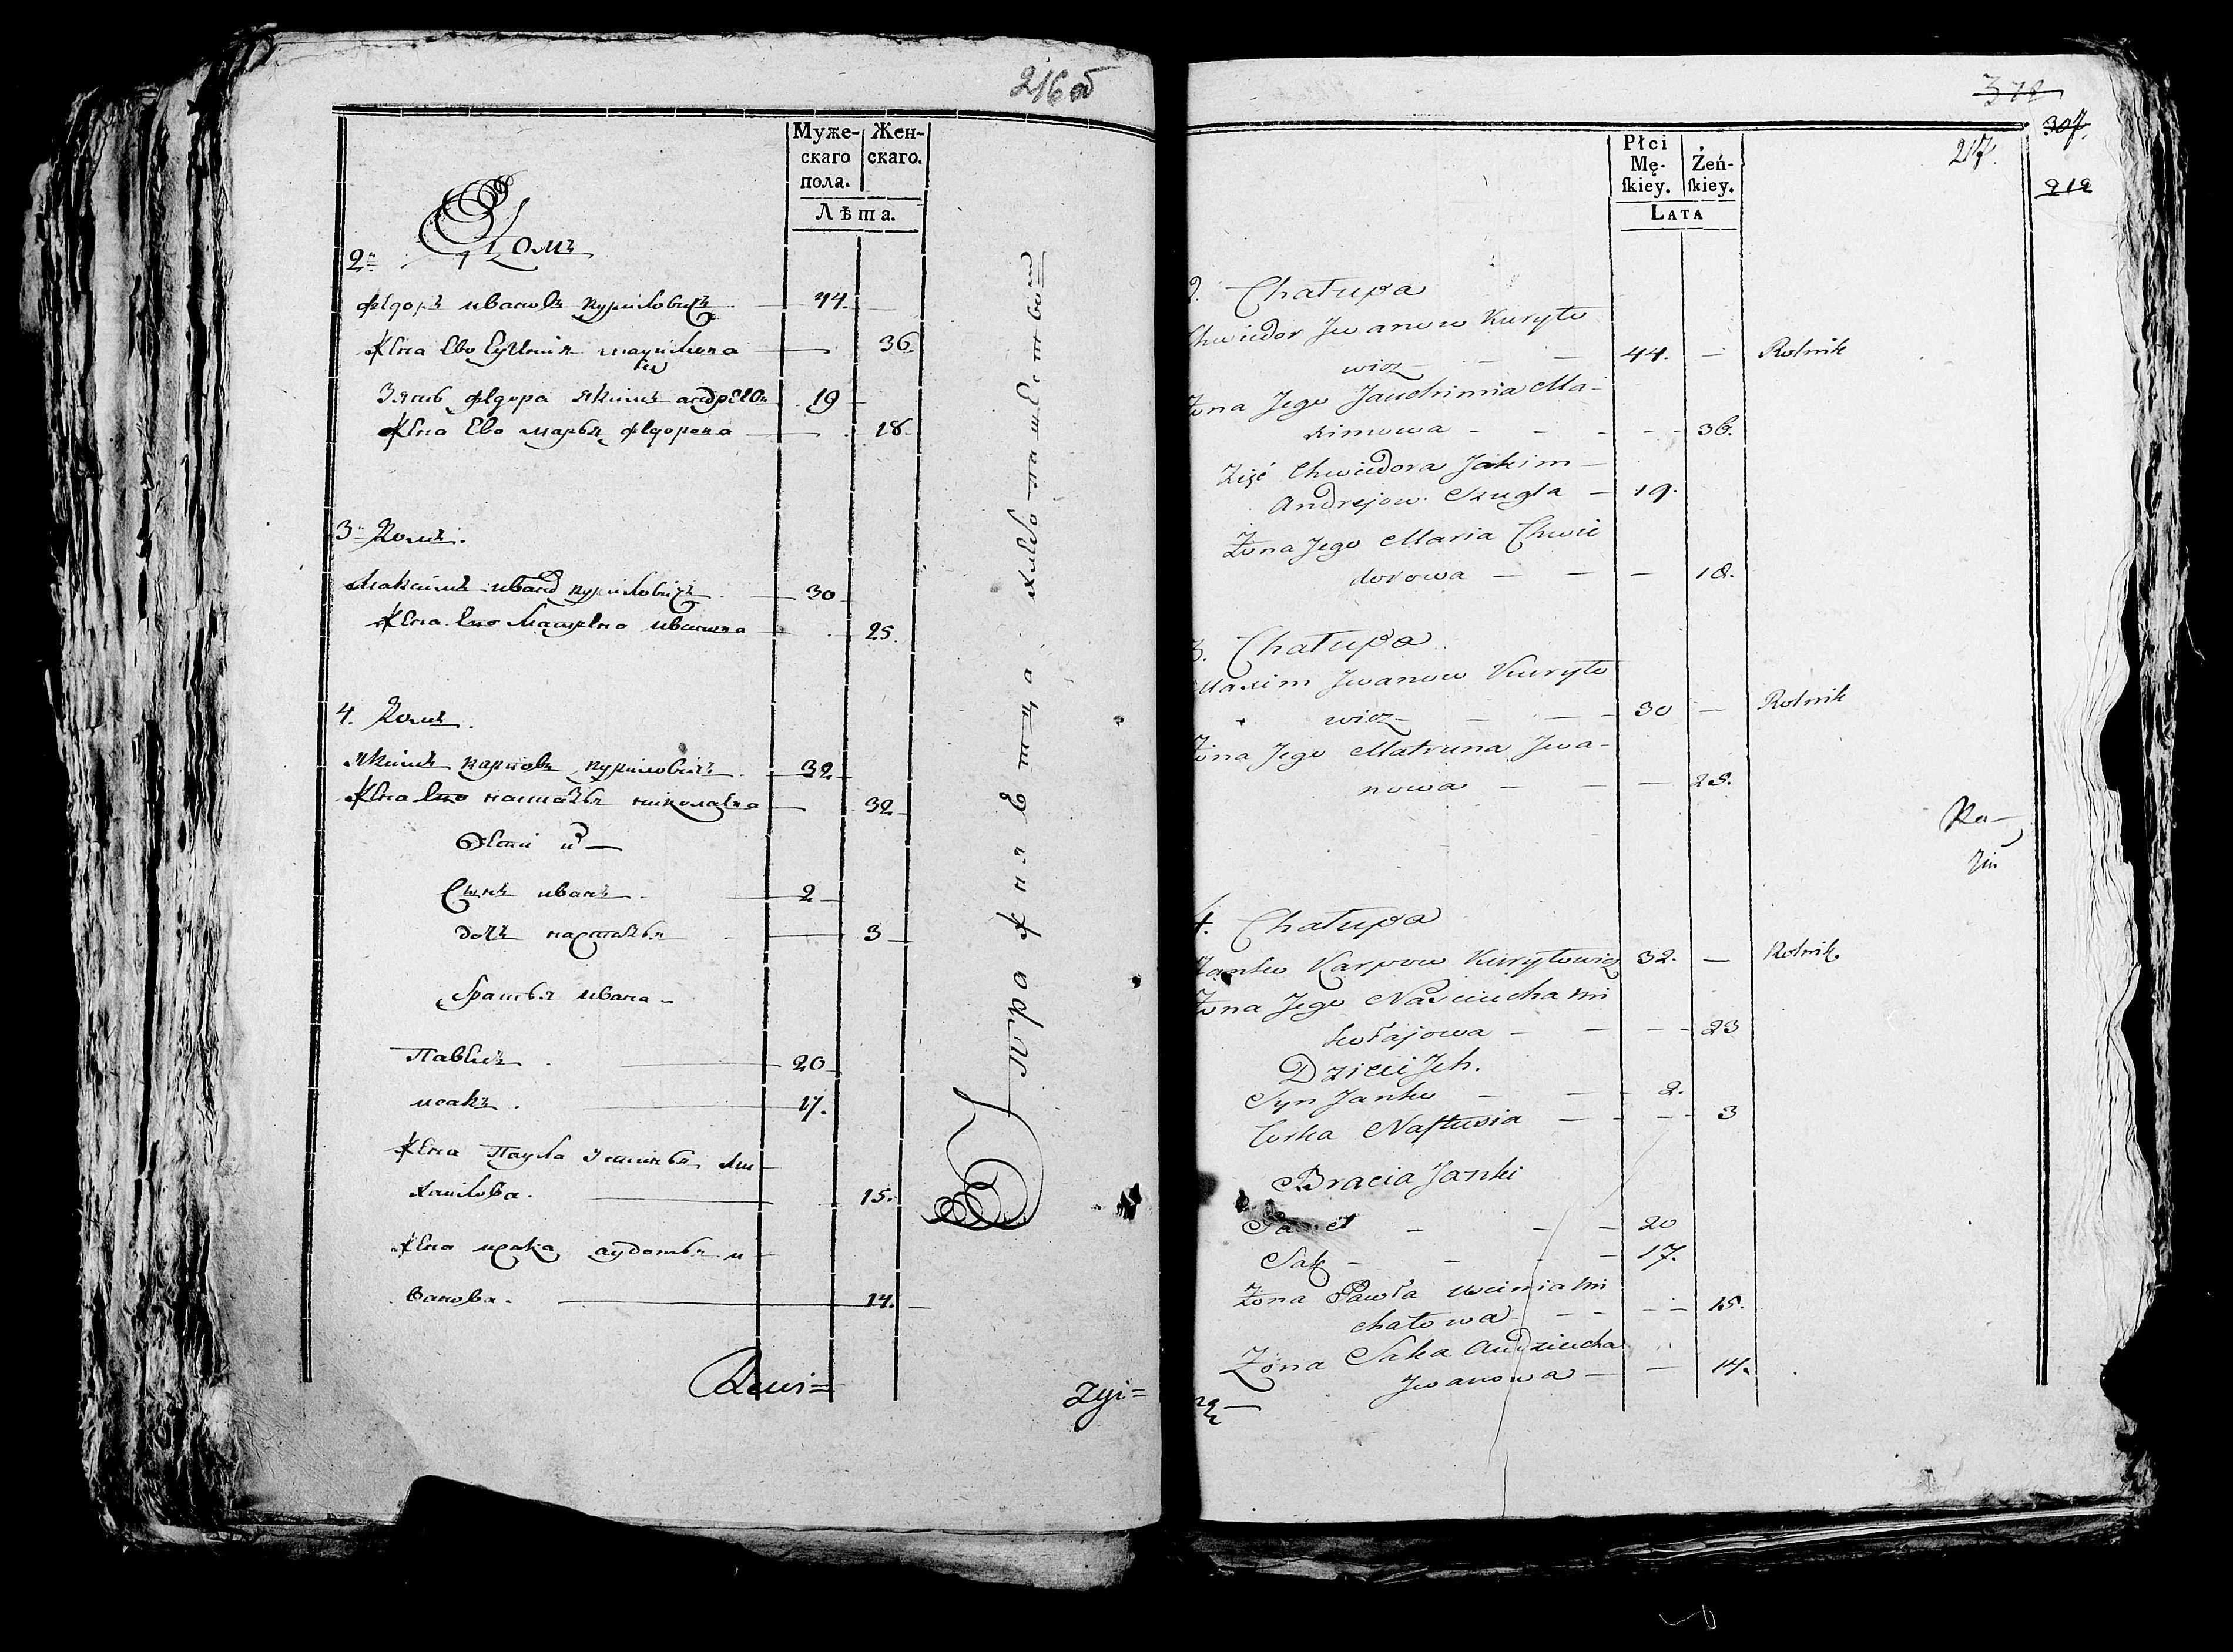 216 об
Муже-
скаго
пола.
Жен-
скаго.
Лѣта.
2. Домъ
Федоръ Ивановъ Куриловичъ 44.
Жена Его Еуѳимія Мауимова 36.
Зять Федора Якимъ Андреювъ 19
Жена Его Марья Федорова 18.
3. Домъ.
Максимъ Иванов Куриловичъ 30
Жена Его Матрена Иванова 25.
4. Домъ.
Якимъ Карповъ Куриловичъ 32
Жена Его Настазья Николаева 32
Дети их
Сынъ Иванъ 2
дочь Настазья 3
братья Ивана
Павелъ 20
Исакъ 17.
Жена Паула Устинья Ми-
хаилова. 15.
Жена Исака Аудотья И-
ванова. 14.
Упражняется хлебопашествомъ
Rewi=
zyi=
312
307.
217.
212
Płci
Mę-
ſkiey.
Żeń-
ſkiey.
LATA
2. Chałupa
Chwiedor Jwanow Kuryło
wicz 44. Rolnik
Żona Jego Jauchimia Ma-
ximowa 36.
Zięć Chwiedora Jakim
Andrejow Szugla 19.
Żona Jego Maria Chwie
dorowa 18.
3. Chałupa
Maxim Jwanow Kuryło
wicz 30 Rolnik
Żona Jego Matruna Jwa-
nowa 25.
4. Chałupa
Janko Karpow Kuryłowicz 32. Rolnik.
Żona Jego Nasciucha Mi
kołajowa 23
Dzieci Jch.
Syn Janko 2.
Corka Naſtusia 3
Bracia Janki
Paweł 20
Sak 17.
Żona Pawła Uciniia Mi
chałowa 15.
Żona Saka Audziucha
Jwanowa 14.